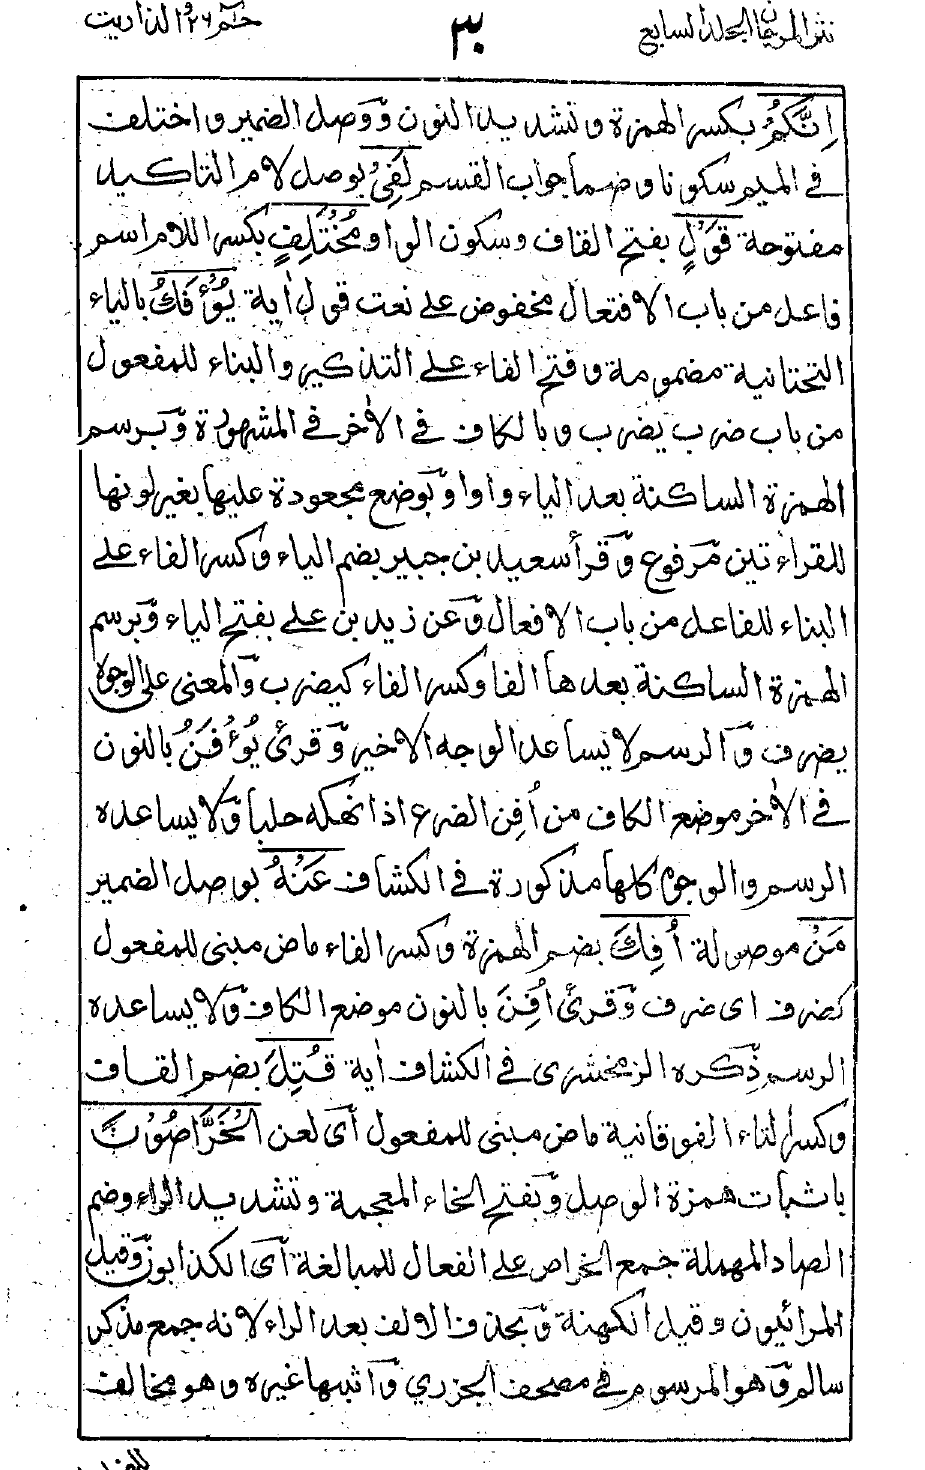 نثر المرجان المجلد السابع
٣٠
حٰم ٢٦ والذاريت
اِنَّكُمُ بكسر الهمزة وتشديد النون ووصل الضمير واختلف
في الميم سكونا وضما جواب القسم لَفِيْ بوصل لام التاكيد
مفتوحة قَوْلٍ بفتح القاف وسكون الواو مُخْتَلِفٍ بكسر اللام اسم
فاعل من باب الافتعال مخفوض على نعت قول اٰية يُؤْفَكُ بالياء
التحتانية مضمومة وفتح الفاء على التذكير والبناء للمفعول
من باب ضرب يضرب وبالكاف في الاٰخر في المشهورة وبرسم
الهمزة الساكنة بعد الياء واوا وبوضع مجعودة عليها بغير لونها
للقراءتين مرفوع وقرأ سعيد بن جبير بضم الياء وكسر الفاء على
البناء للفاعل من باب الافعال وعن زيد بن علي بفتح الياء وبرسم
الهمزة الساكنة بعدها الفا وكسر الفاء كيضرب والمعنى على الوجوه
يضرف والرسم لا يساعد الوجه الاخير وقرئ يُؤْفَنُ بالنون
في الاٰخر موضع الكاف من اُفِن الضرع اذا نهكه حلبا ولا يساعده
الرسم والوجوه كلها مذكورة في الكشاف عَنْهُ بوصل الضمير
مَنْ موصولة اُفِكَ بضم الهمزة وكسر الفاء ماض مبنى للمفعول
كضرف اى ضرف وقرئ اُفِنَ بالنون موضع الكاف ولا يساعده
الرسم ذكره الزمخشرى في الكشاف اٰية قُتِلَ بضم القاف
وكسر التاء الفوقانية ماض مبنى للمفعول اَى لعن الْخَرَّاصُوْنَ
باثبات همزة الوصل وبفتح الخاء المعجمة وتشديد الراء وضم
الصاد المهملة جمع الخراص على الفعال للمبالغة اَى الكذابون وقيل
المرائيون وقيل الكهنة وبحذف الالف بعد الراء لانه جمع مذكر
سالم وهو المرسوم في مصحف الجزري واثبتها غيره وهو مخالف